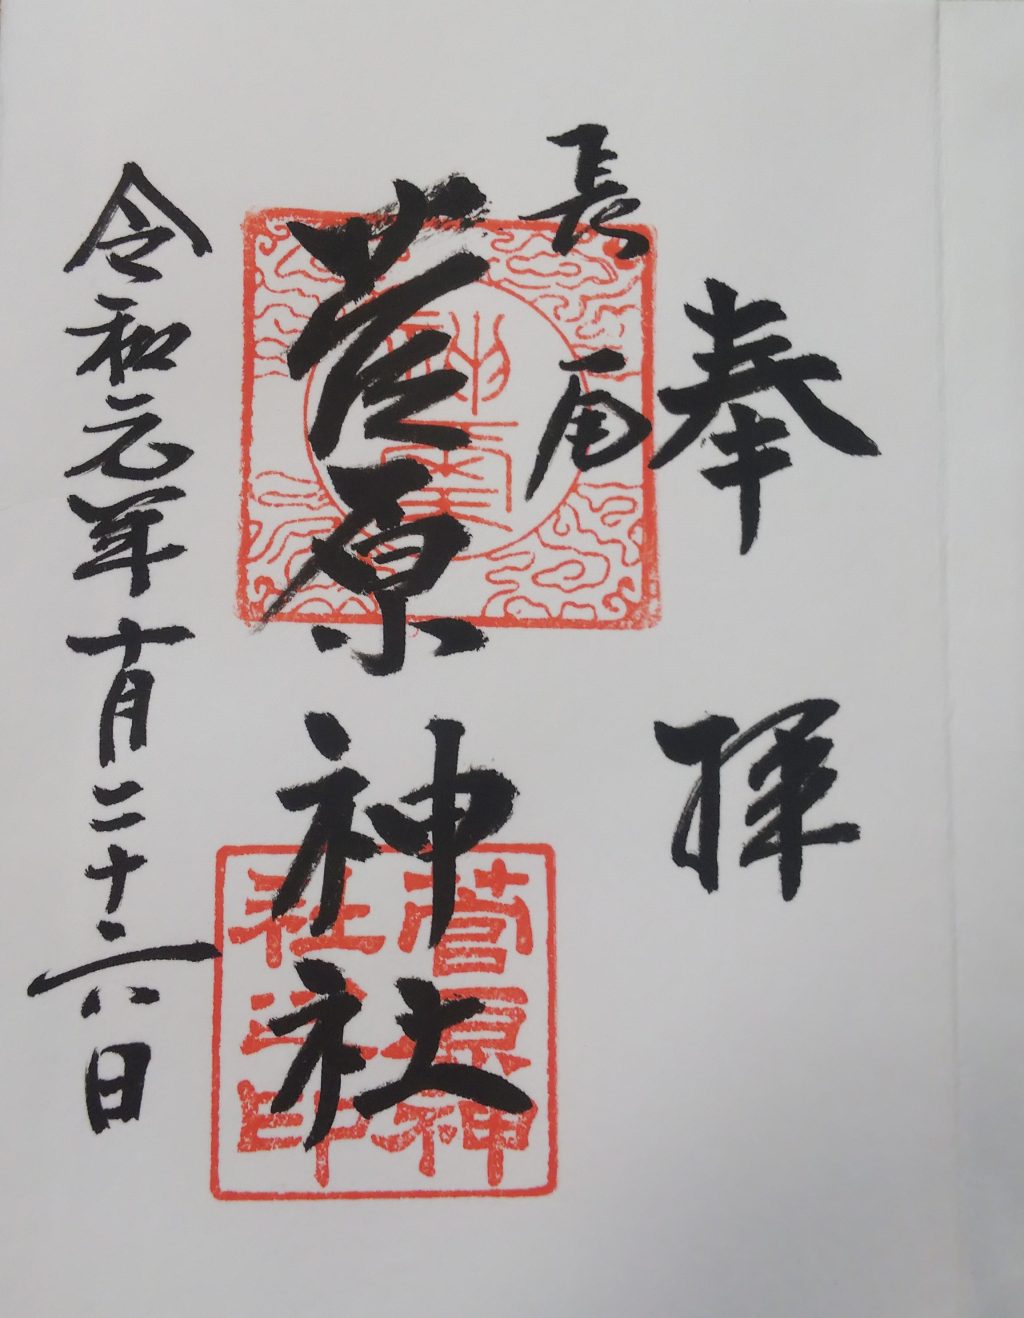 奉拝
長尾
菅原神社
菅原神
社之印
令和元年十月二十六日